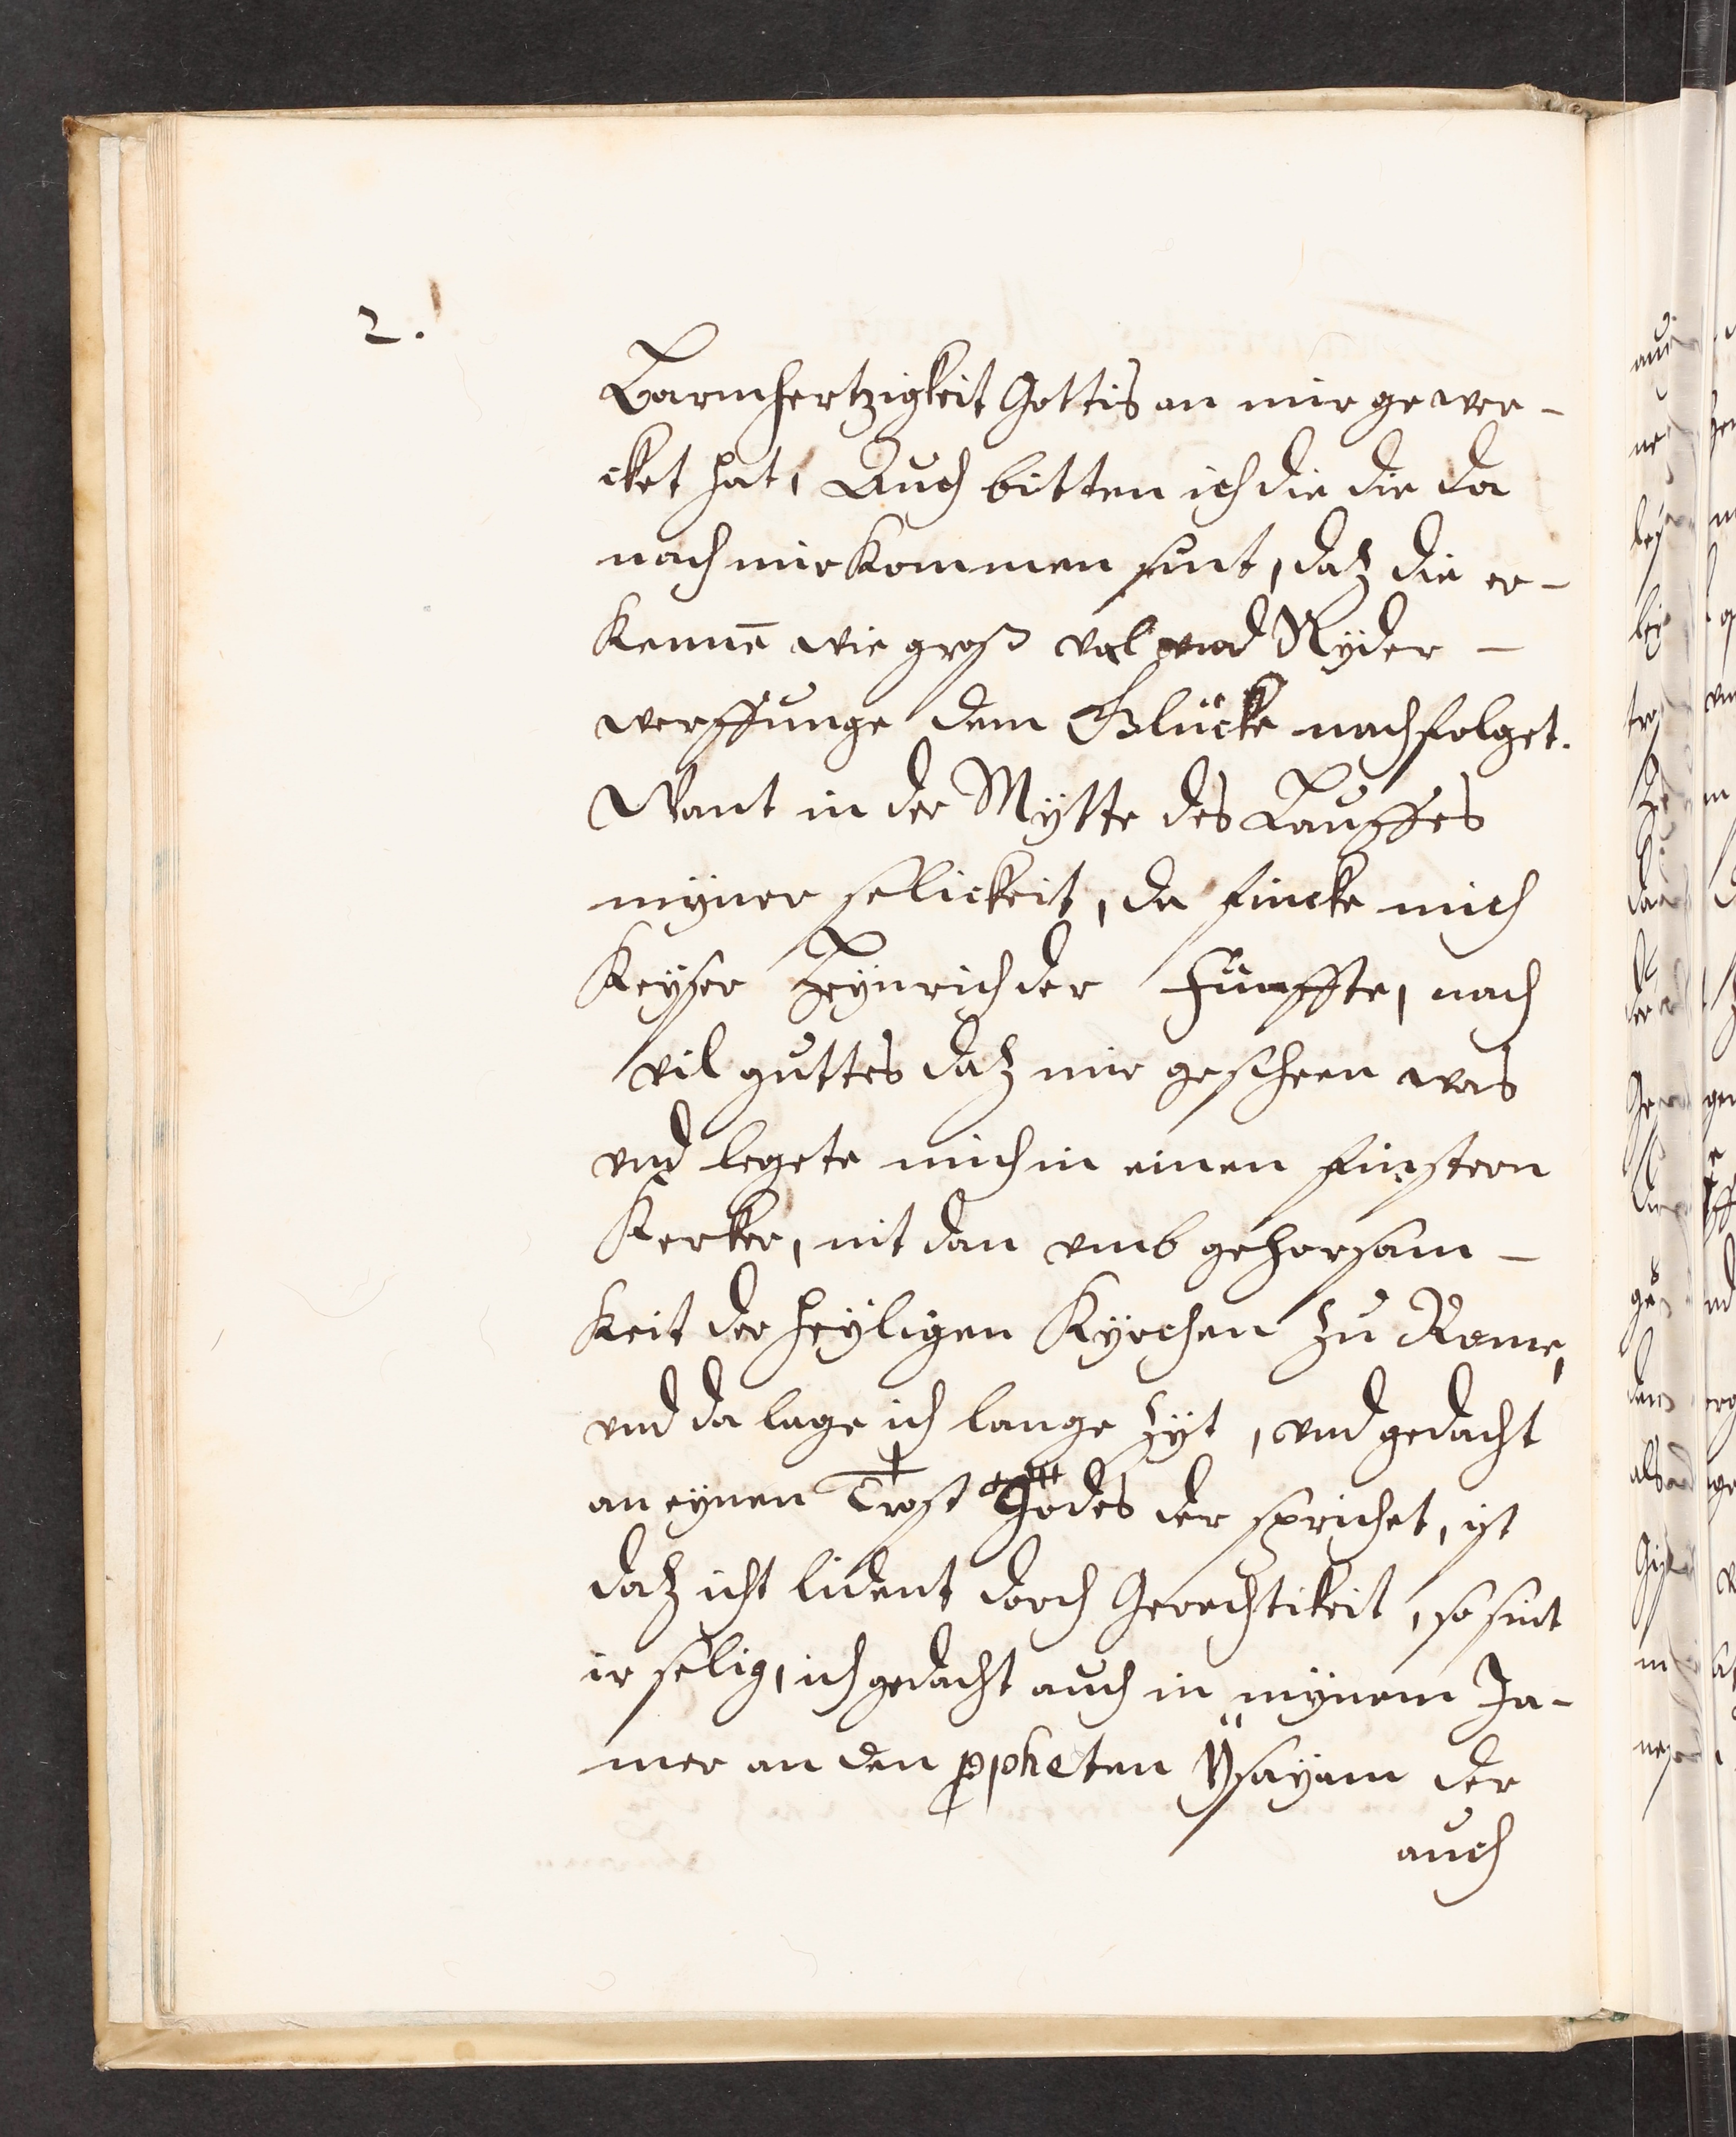 2.
Barmhertzigkeit Gottis an mir gewer-
cket hat, Auch bitten ich die die da
nach mir kommen sint, daz die er-
kennē wie groß val vnd Nyder-
werffunge dem Glücke nachfolget.
Want in der Mytte des Lauffes
myner selickeit, da fincke mich
Keyser Heynrich der Fünffte, nach
vil guttes daz mir gescheen was
vnd legete mich in einen finstern
Kerker, nit dan vmb gehorsam-
keit der heyligen Kyrchen zu Rome,
vnd da lage ich lange zyt, vnd gedacht
an eynen Trost Godes der sprichet, ist
daz icht lident dorch Gerechtikeit, so sint
ir selig, ich gedacht auch in mynem Ja-
mer an den ppheten Ysayam der
auch